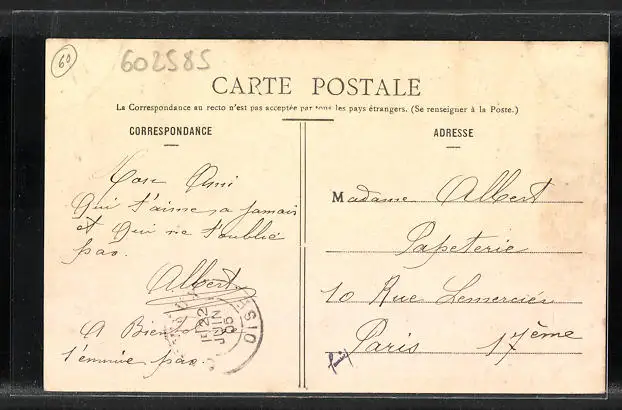 60
602585
CARTE POSTALE
La Correspondance au recto n'est pas acceptée par tous les pays étrangers. (Se renseigner à la Poste.)
CORRESPONDANCE
Ton Ami
Qui t'aime a jamais
et Qui ne t'oublie
pas.
Albert
A Bientot
t'ennuie pas.
OISE
22
JUIN
05
ADRESSE
Madame Albert
Papeterie
10 Rue Lemercier
Paris 17ème